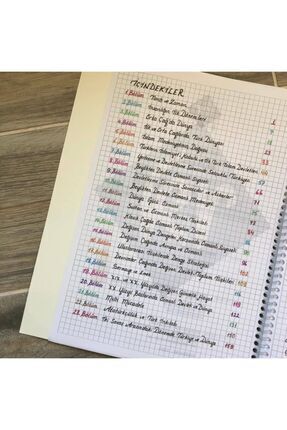 İÇİNDEKİLER
1.Bölüm Tarih ve Zaman 1
2.Bölüm İnsanlığın İlk Dönemleri
3.Bölüm Orta Çağ'da Dünya
4.Bölüm İlk ve Orta Çağlarda Türk Dünyası
5.Bölüm İslam Medeniyetinin Doğuşu
6.Bölüm Türklerin İslamiyet'i Kabulü ve İlk Türk İslam Devletleri
7.Bölüm Yerleşme ve Devletleşme Sürecinde Selçuklu Türkiyesi
8.Bölüm Beylikten Devlete Osmanlı Siyaseti
9.Bölüm Devletleşme Sürecinde Savaşçılar ve Askerler
10.Bölüm Beylikten Devlete Osmanlı Medeniyeti
11.Bölüm Dünya Gücü Osmanlı
12.Bölüm Sultan ve Osmanlı Merkez Teşkilatı
13.Bölüm Klasik Çağda Osmanlı Toplum Düzeni
14.Bölüm Değişen Dünya Dengeleri Karşısında Osmanlı Siyaseti
15.Bölüm Değişim Çağında Avrupa ve Osmanlı
16.Bölüm Uluslararası İlişkilerde Denge Stratejisi
17.Bölüm Devrimler Çağında Değişen Devlet-Toplum İlişkileri
18.Bölüm Sermaye ve Emek
19.Bölüm XIX. ve XX. Yüzyılda Değişen Gündelik Hayat
20.Bölüm XX. Yüzyıl Başlarında Osmanlı Devleti ve Dünya
21.Bölüm Milli Mücadele
22.Bölüm Atatürkçülük ve Türk İnkılabı
23.Bölüm İki Savaş Arasındaki Dönemde Türkiye ve Dünya